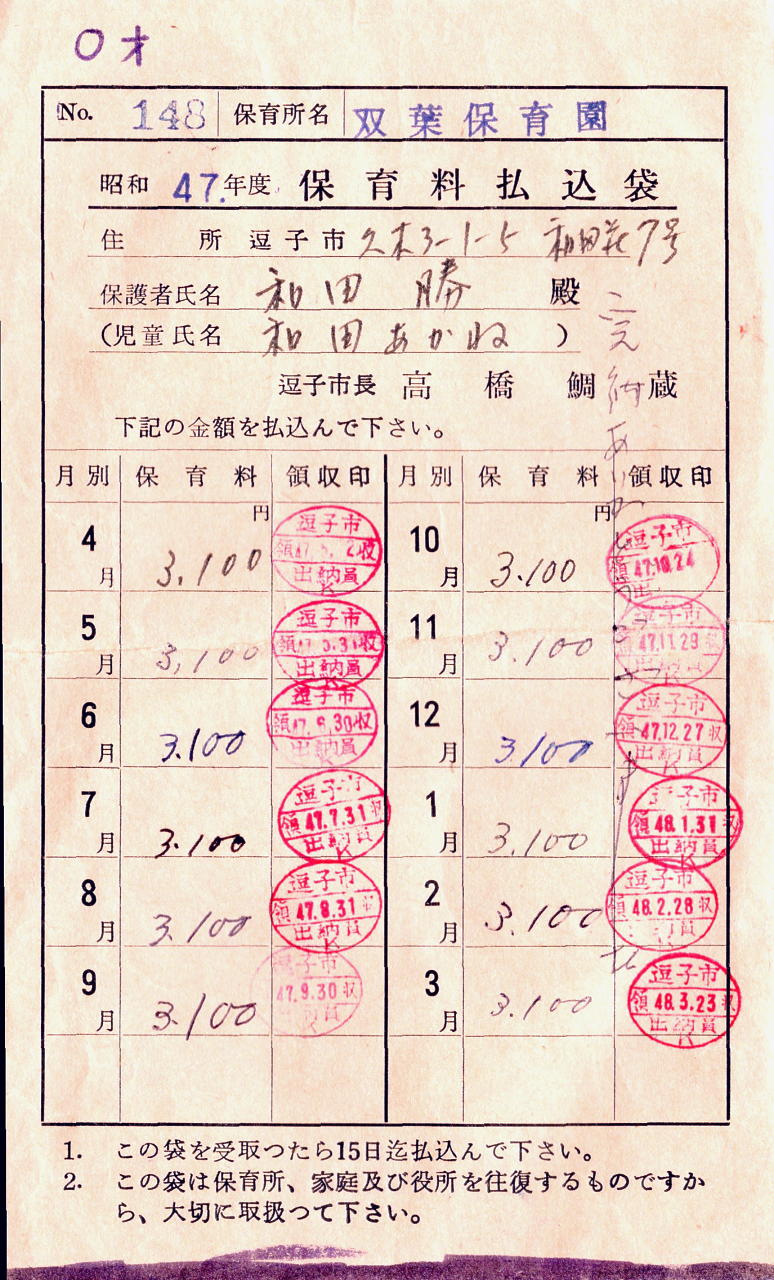 0才
No. 148 保育所名 双葉保育園
昭和 47.年度 保育料払込袋
住所 逗子市 久木3-1-5 和田荘7号
保護者氏名 和田 勝 殿
(児童氏名 和田あかね )
逗子市長 高橋鯛蔵
下記の金額を払込んで下さい。
月別 保育料 領収印 月別 保育料 領収印
4月 3.100円 逗子市 領収 出納員 K 10月 3.100円 逗子市 領 47.10.24
5月 3,100 逗子市 領収 出納員 K 11月 3.100 逗子市 領 47.11.29 収 出納員
6月 3.100 逗子市 領 47.6.30 収 出納員 12月 3.100 逗子市 領 47.12.27 収 出納員 K
7月 3.100 逗子市 領 47.7.31 収 出納員 K 1月 3.100 逗子市 領 48.1.31 収 出納員 K
8月 3.100 逗子市 領 47.8.31 収 出納員 K 2月 3.100 逗子市 領 48.2.28 収 出納員
9月 3.100 逗子市 47.9.30 収 員 3月 3.100 逗子市 領 48.3.23 収 出納員 K
1. この袋を受取つたら15日迄払込んで下さい。
2. この袋は保育所、家庭及び役所を往復するものですか
ら、大切に取扱つて下さい。